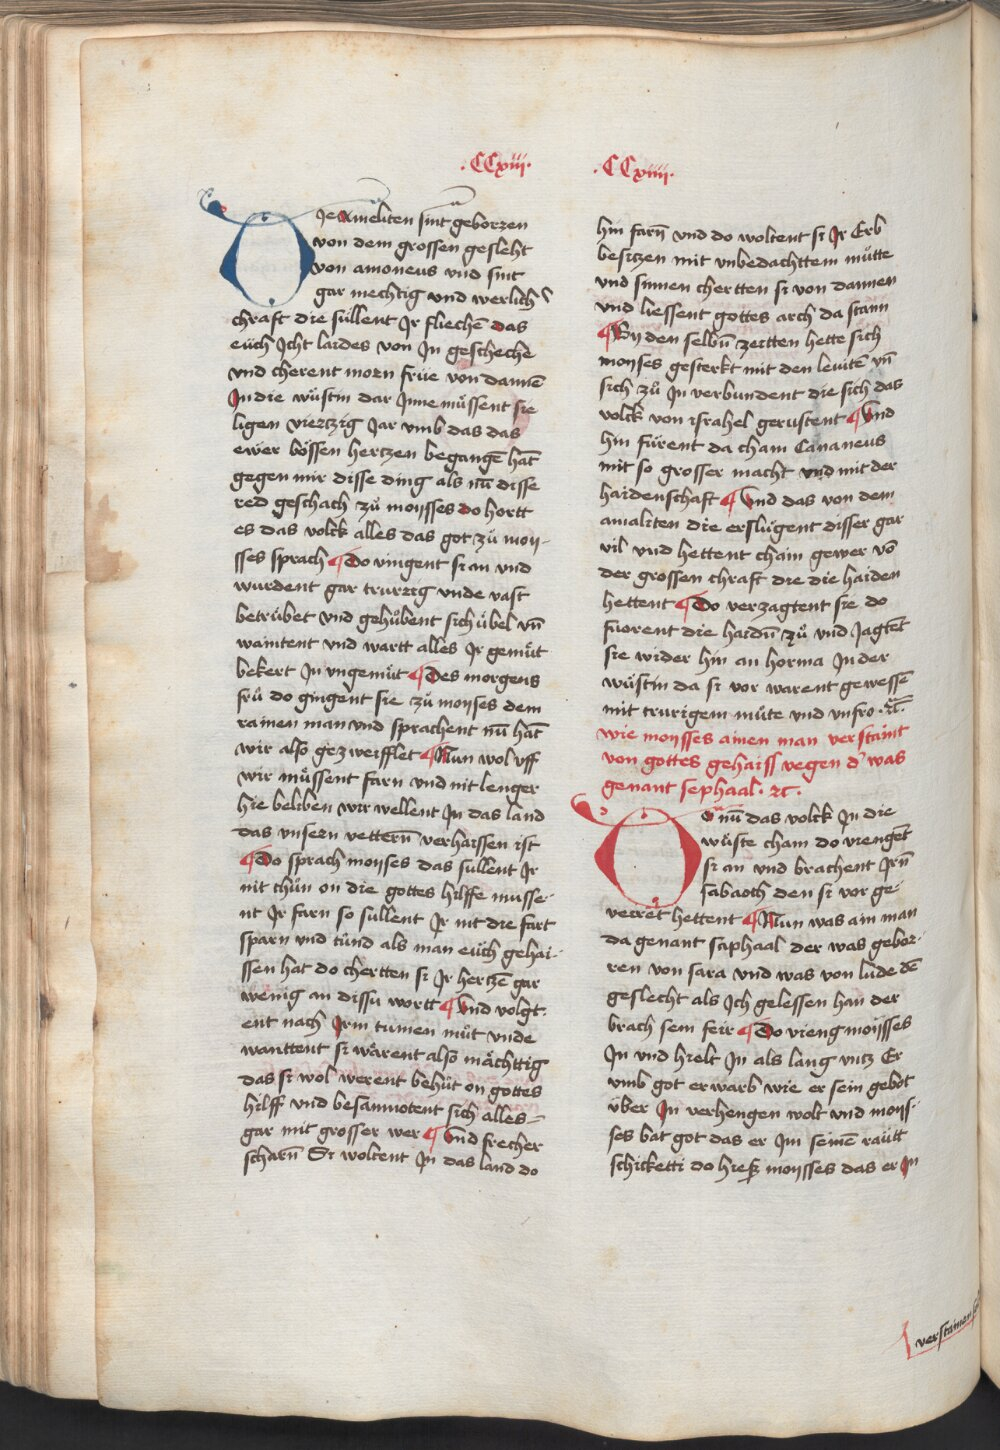 .CCxiii.
Die Ameliten sint geborren
von dem grossen geslecht
von amoneus vnd sint
gar mechtig vnd werlich
chraft die süllent Jr fliechē das
eüch Jcht laides von Jn gescheche
vnd cherent morn früe von dannē
Jn die wüstin dar Jnne müssent sie
ligen viertzig Jar vmb das das
ewer bössen hertzen begangē hat
gegen mir disse ding als nu disse
red geschach zů moysses do hortt
es das volck alles das got zů moy-
sses sprach ¶ Do viengent si an vnd
wurdent gar trurzig vnde vast
betrübet vnd gehůbent sich übel vn̄
waintent vnd wartt alles Jr gemüt
bekert Jn vngemüt ¶ Des morgens
frů do gingent sie zů moyses dem
rainen man vnd sprachent nu hāt
wir also gezweifflet ¶ Nun wol vff
wir müssent farn vnd nit lenger
hie beliben wir wellent Jn das land
das vnsern vettern̄ verhaissen ist
¶ Do sprach moyses das sullent Jr
nit thůn on die gottes hilffe musse-
nt Jr farn so sullent Jr nit die fart
sparn vnd tůnd als man eüch gehai-
ssen hat do chertten si Jr hertzē gar
wenig an dissu wortt ¶ Vnd volgt-
ent nach Jrm tumen můt vnde
wanttent si wärent also mächttig
das si wol werent behüt on gottes
hilff vnd besamnotent sich alles-
gar mit grosser wer ¶ Vnd frecher
scharn̄ Si woltent Jn das land do
.CCxiiii.
hin farn̄ vnd do woltent si Jr Erb
besitzen mit vnbedachttem můtte
vnd sinnen chertten si von dannen
vnd liessent gottes arch da stann
¶ By den selbn̄ zeitten hette sich
moyses gesterkt mit den leuitē vn̄
sich zů Jn verbundent die sich das
volck von israhel gerustent ¶ Vnd
hin fůrent da cham Cananeus
mit so grosser macht vnd mit der
haidenschaft ¶ Vnd das von dem
amaliten die erslůgent disser gar
vil vnd hettent chain gewer vō
der grossen chraft die die haiden
hettent ¶ Do verzagtent sie do
fuorent die haidn̄ zů vnd Jagtēt
sie wider hin an horma Jn der
wüstin da si vor warent gewessē
mit trurigem můte vnd vnfro .rc.
wie moysses ainen man verstaint
von gottes gehaiss wegen d' was
genant sephaal . rc .
Do nu das volck Jn die
wüste cham do viengēt
si an vnd brachent Jrn̄
sabaoth den si vor ge-
veiret hettent ¶ Nun was ain man
da genant saphaal der was gebor-
ren von sara vnd was von lude dē
geslecht als Jch gelessen han der
brach sein feir ¶ Do vieng moysses
Jn vnd hielt Jn als lang vntz Er
vmb got erwarb wie er sein gebot
über Jn verhengen wolt vnd moys-
ses bat got das er Jm seinē raůtt
schicketti do hiesz moysses das er Jn
verstainen